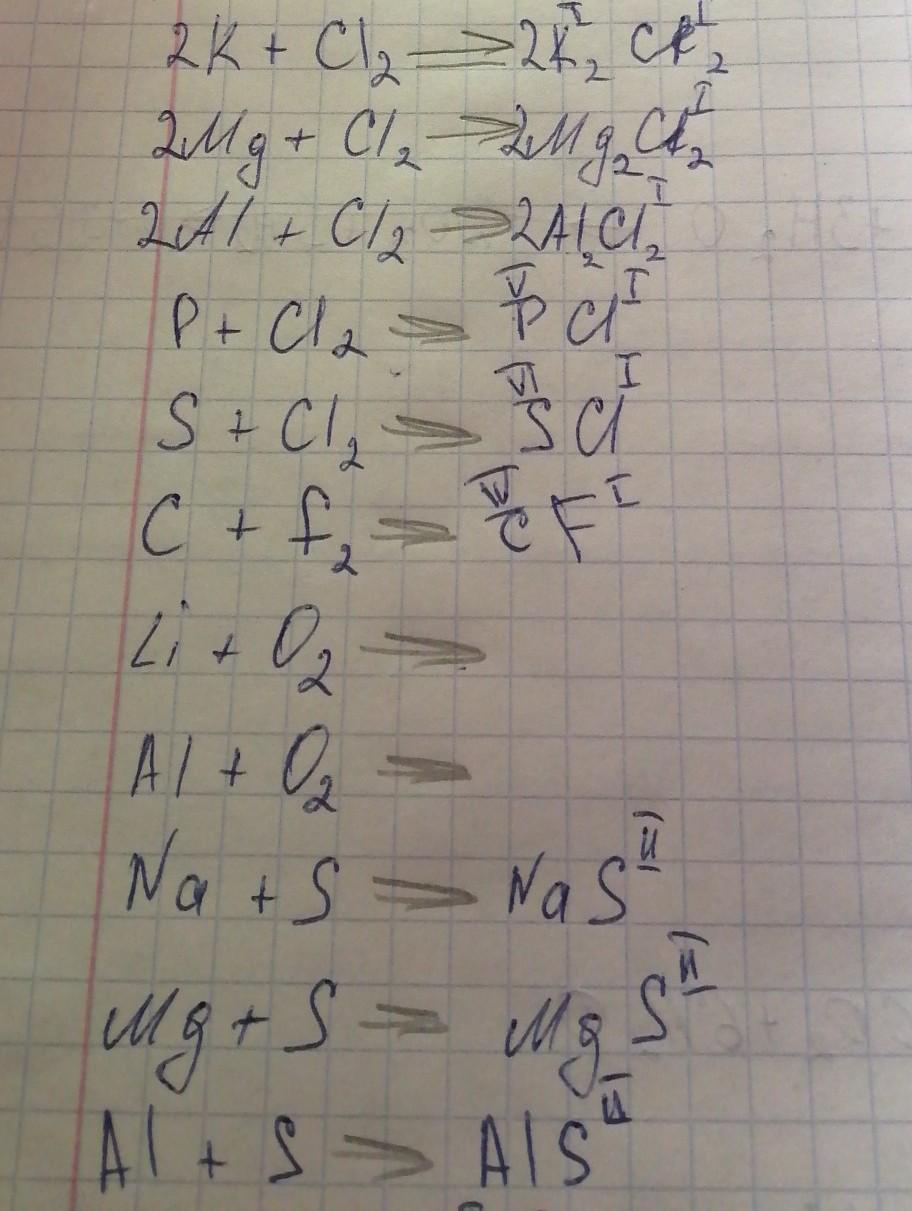 2K + Cl₂ ⟹ 2K₂ᴵ Cl₂ᴵ
2Mg + Cl₂ → 2Mg₂Cl₂ᴵ
2Al + Cl₂ ⇒ 2Al₂Cl₂ᴵ
P + Cl₂ ⇒ ⱽP Clᴵ
S + Cl₂ ⇒ ⱽᴵS Clᴵ
C + f₂ ⇒ C Fᴵ
Li + O₂ ⇒
Al + O₂ ⇒
Na + S ⇒ Na Sᴵᴵ
Mg + S ⇒ Mg Sᴵᴵ
Al + S ⇒ Al Sᴵᴵ